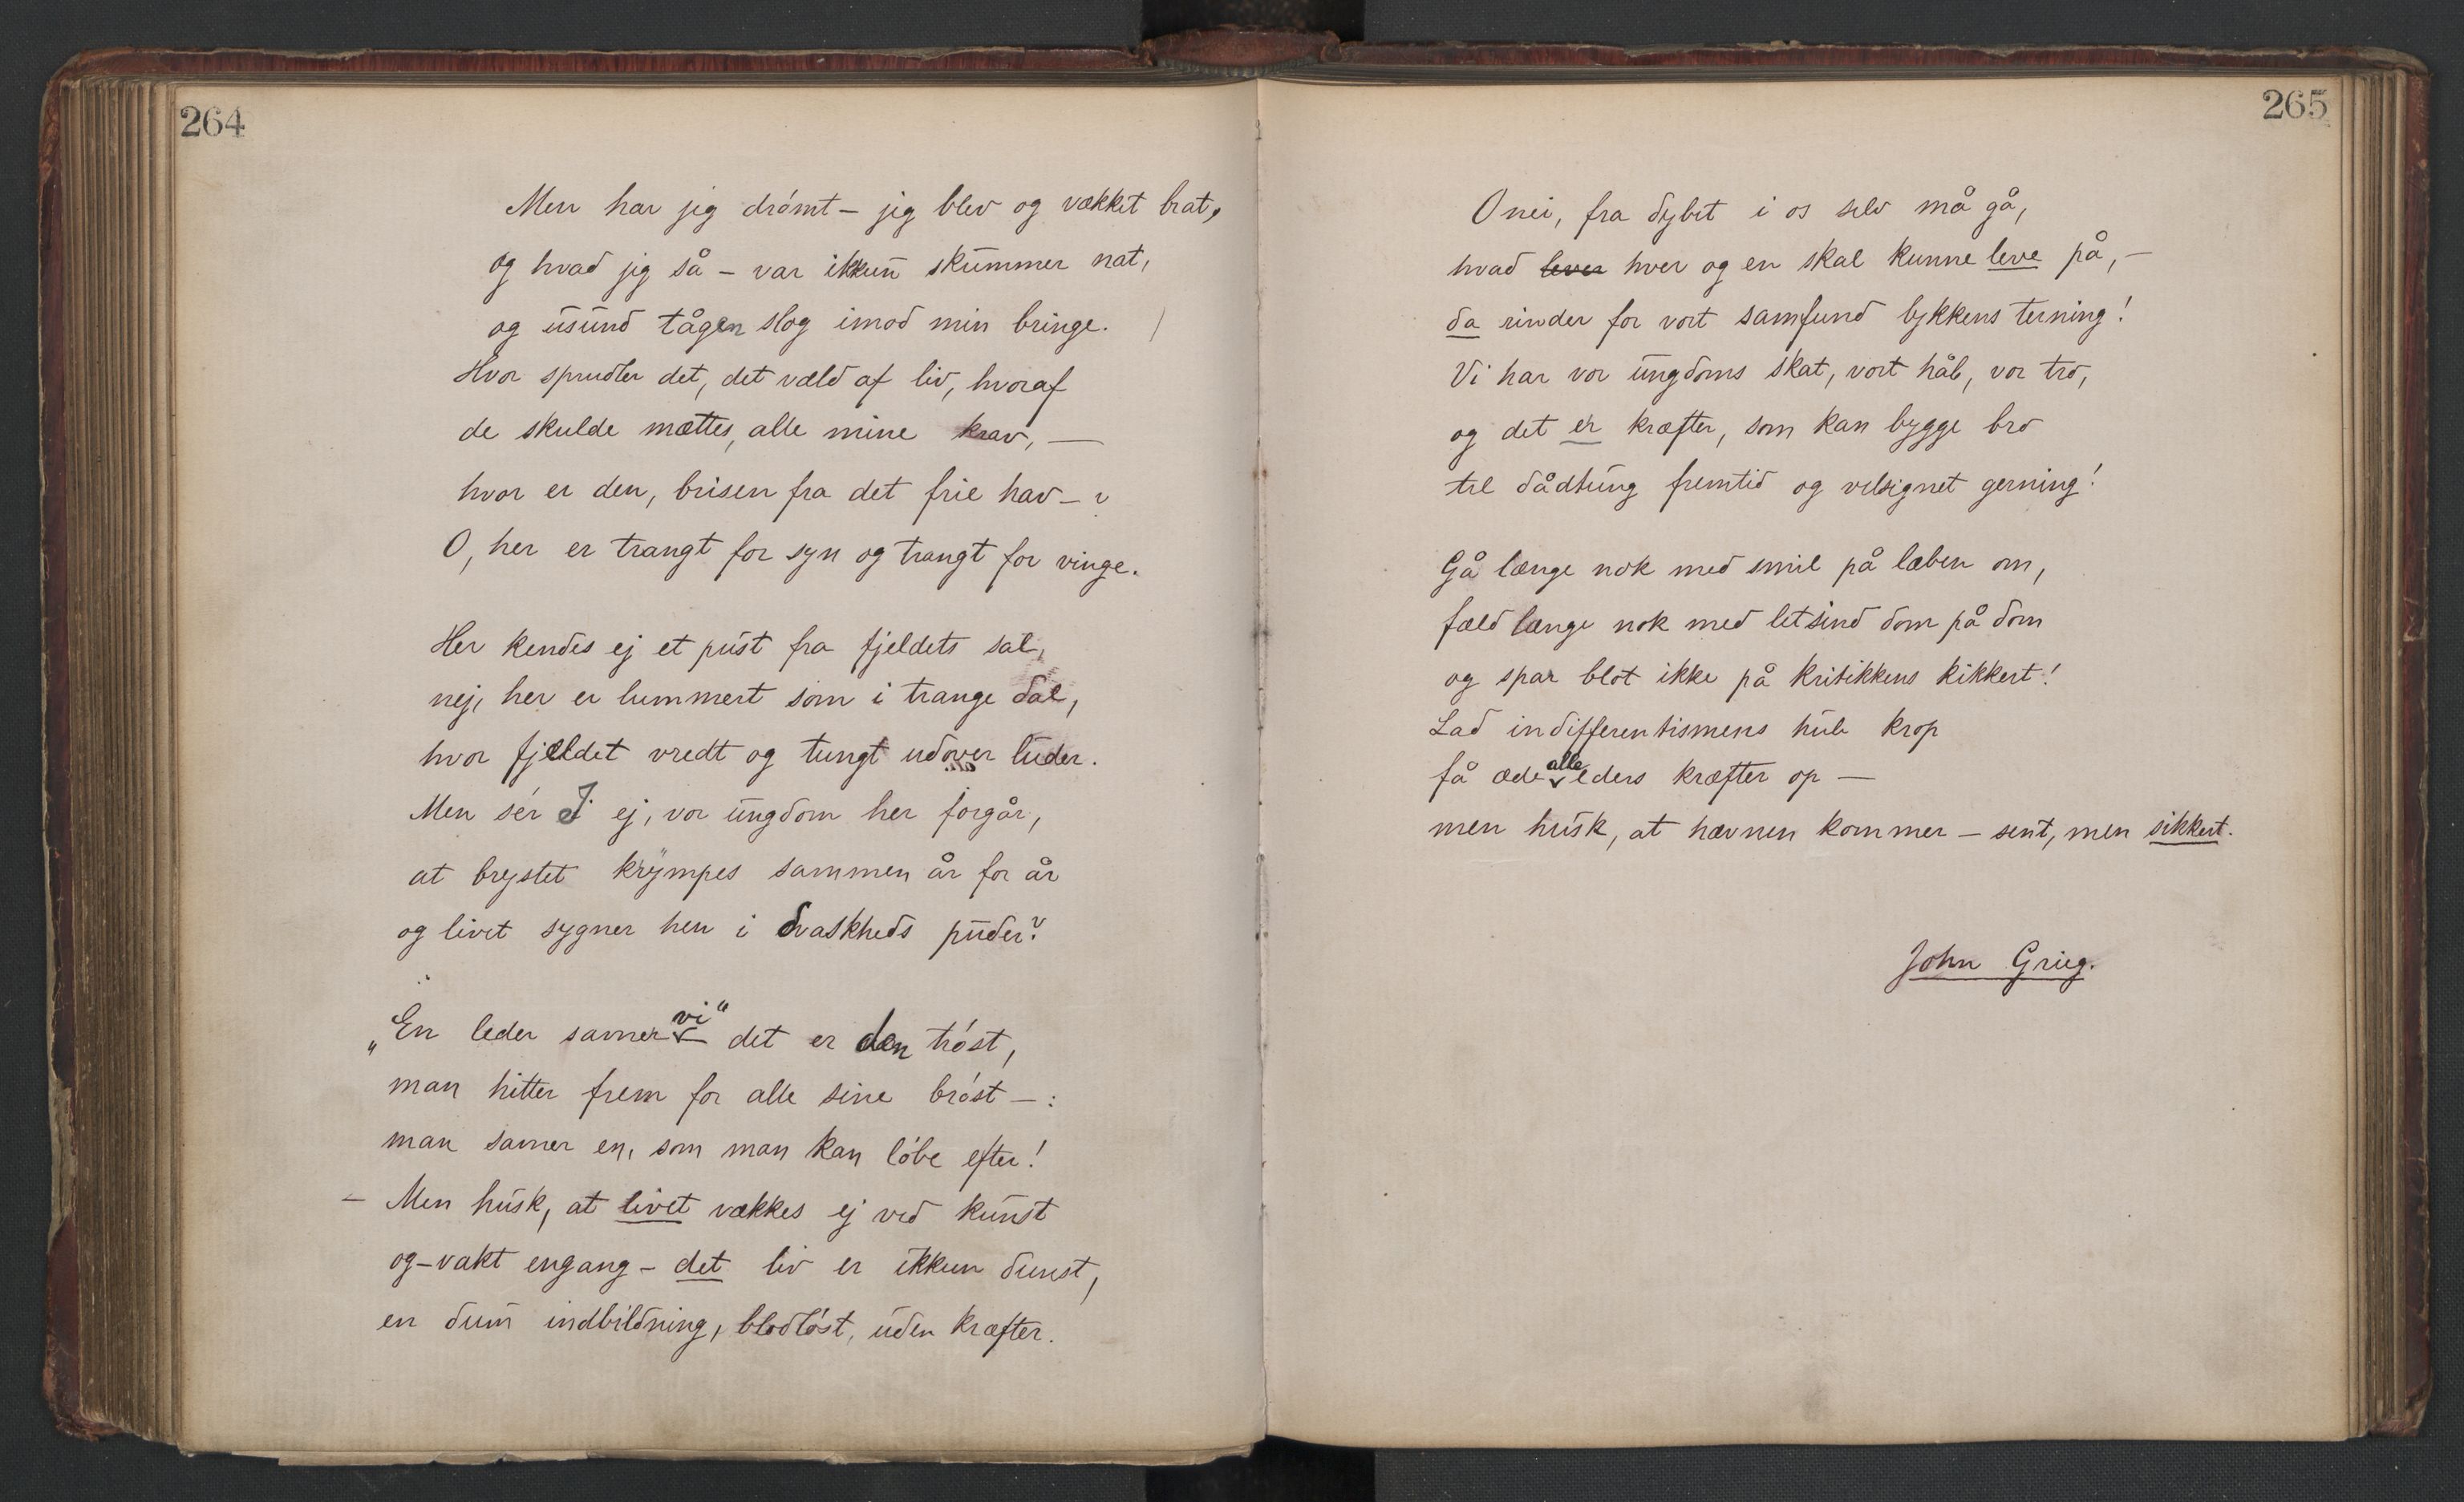 264
Men har jeg drómt – jeg blev og vækket brat,
og hvad jeg så – var ikkun skummer nat,
og usund tågen slog imod min bringe.
Hvor sprudler det, det væld af liv, hvoraf
de skulde mættes, alle mine krav, —
hvor er den, brisen fra det frie hav – ?
O, her er trangt for syn og trangt for vinge.
Her kendes ej et pust fra fjeldets sal,
nej, her er lummert som i trange dal,
hvor fjeldet vredt og tungt udover luder.
Men sér I ej, vor ungdom her forgår,
at brystet krympes sammen år for år
og livet sygner hen i dvaskheds puder?
„En leder savner vi“ – det er den tróst,
man hitter frem for alle sine bróst – :
man savner en, som man kan lóbe efter!
– Men husk, at livet vækkes ej ved kunst
og – vakt engang – det liv er ikkun dunst,
en dum indbildning, blodlóst, uden kræfter.
265
O nei, fra dybet i os selv må gå,
hvad lever hver og en skal kunne leve på, –
da rinder for vort samfund lykkens terning!
Vi har vor ungdoms skat, vort håb, vor tro,
og det er kræfter, som kan bygge bro
til dådtung fremtid og velsignet gerning!
Gå længe nok med smil på læben om,
fæld længe nok med letsind dom på dom
og spar blot ikke på kritikkens kikkert!
Lad indifferentismens hule krop
få æde alle eders kræfter op –
men husk, at hævnen kommer – sent, men sikkert.
John Grieg.